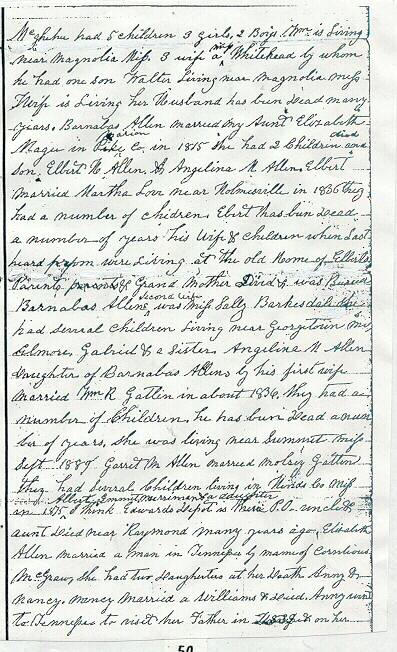 McGhehe had 5 children 3 girls, 2 Boys. Wm is Living
near Magnolia Miss. 3 wife a Miss Whitehead by whom
he had one son Walter Living near magnolia miss
wife is Living her Husband has bun Dead many
years. Barnabas Allen married my Aunt Elizabeth
Magee in Marion Pike Co, in 1815 She had 2 Children died and
Son, Elbert W Allen, & Angelina M Allen. Elbert
married Martha Love near Holmesville in 1836 they
had a number of chidren, Ebirt has bun Dead
a number of years his Wife & Children when last
heard from were Living at the old Home of Elberts
Parents & Grand Mother Died & was Buried
Barnabas Allens second wife was Miss Sally Barkesdale She
had several Children living near Georgetown Miss
Elmore, Gabriel & a Sister. Angelina M Allen
Daughter of Barnabas Allens by his first wife
married Wm R Gatlin in about 1836, they had a
number of Children, he has bun Dead a num
bir of years, she was living near Summit Miss
Sept 1889 Garret M Allen married Molsey Gatlin
they had several Children living in Hinds Co Miss
Albert, Emmit merriman & a daughter
in 1875, I think Edwards Depot is their P.O. uncle &
aunt Died near Raymond many years ago, Elizabeth
Allen married a man in Tennessee by mame of Cornelious
McGraw, She had two Daughters at her Death Anny &
Nancy. Nancy Married a Williams & Died. Anny went
to Tennessee to visit her Father in & on her
50